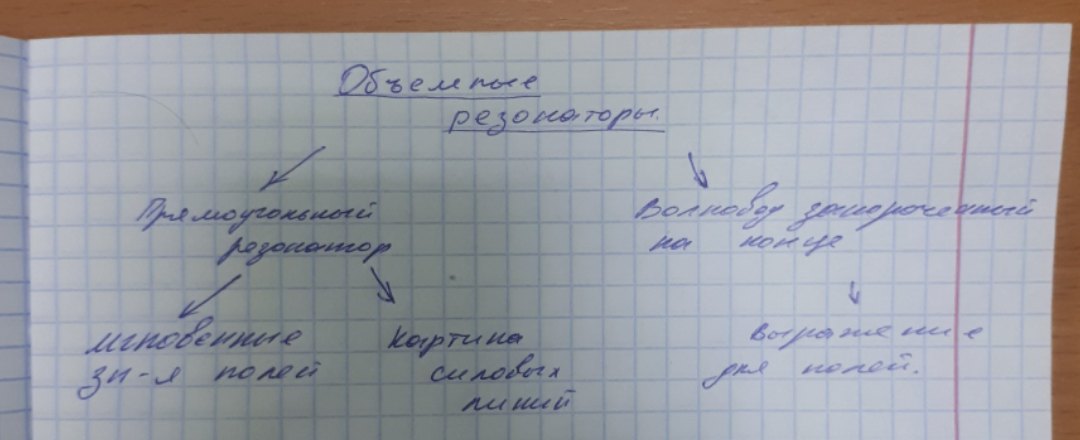 Объемные
резонаторы.
Прямоугольный
резонатор
Волновод закороченный
на конце
мгновенные
зн-я полей
картина
силовых
линий
выражение
для полей.